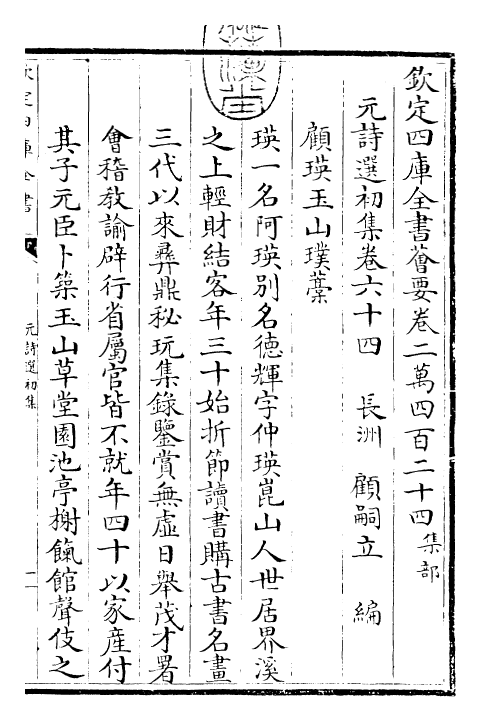 欽定四庫全書薈要卷二萬四百二十四集部
元詩選初集卷六十四　長洲　顧嗣立　編
顧瑛玉山璞藁
瑛一名阿瑛別名德輝字仲瑛崑山人世居界溪
之上輕財結客年三十始折節讀書購古書名畫
三代以來彝鼎秘玩集錄鑒賞無虛日舉茂才署
會稽教諭辟行省屬官皆不就年四十以家産付
其子元臣卜築玉山草堂園池亭榭餼館聲伎之
欽定四庫全書
元詩選初集